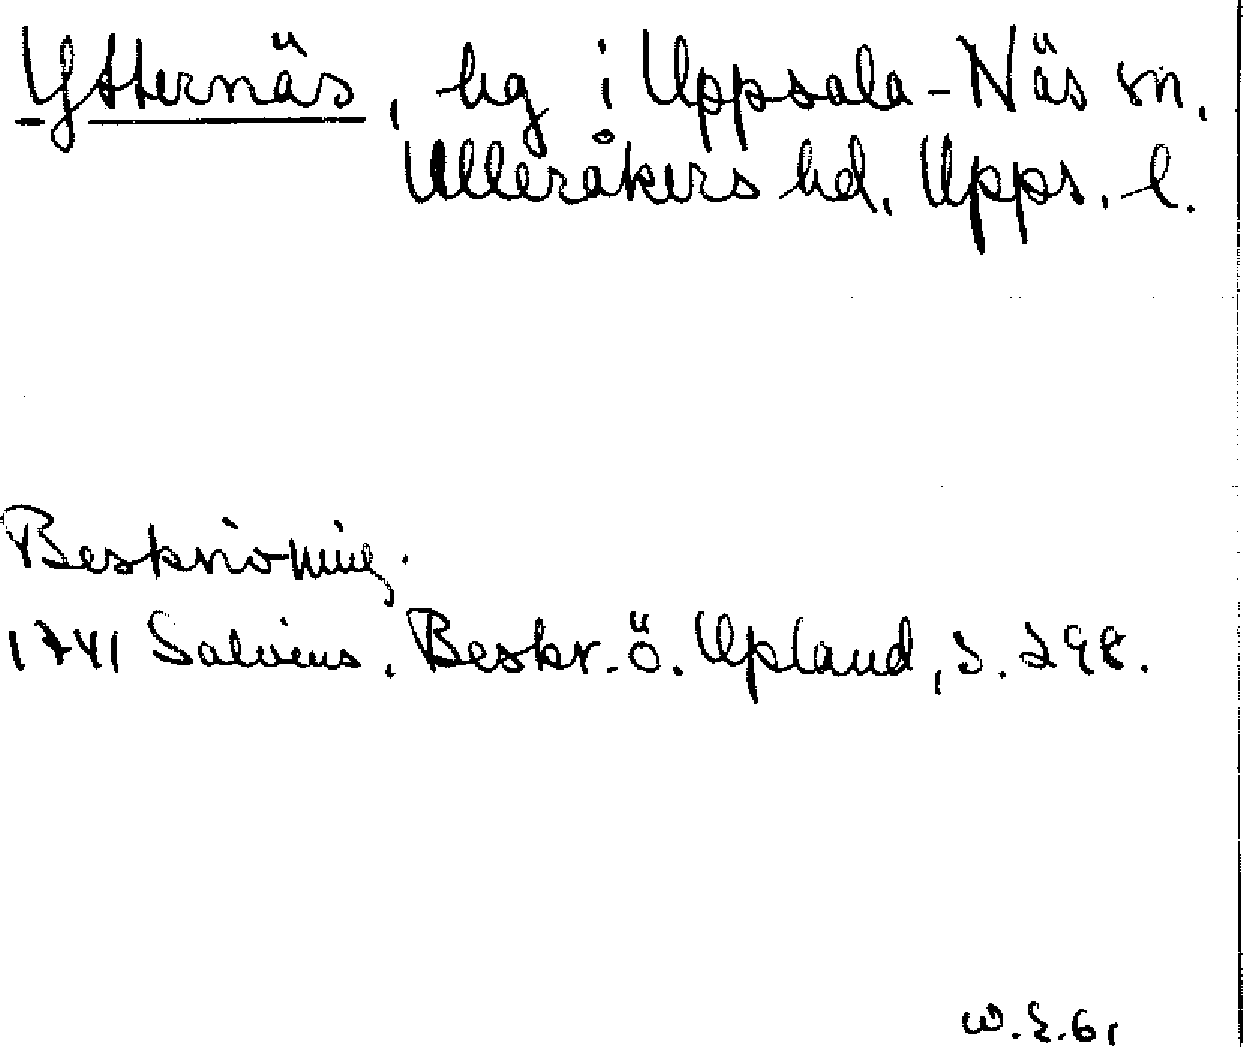 Ytternäs, hg i Uppsala-Näs sn,
Ulleråkers hd, Upps. l.
Beskrivning.
1741 Salvius. Beskr. ö. Upland, s. 298.
W.E.61